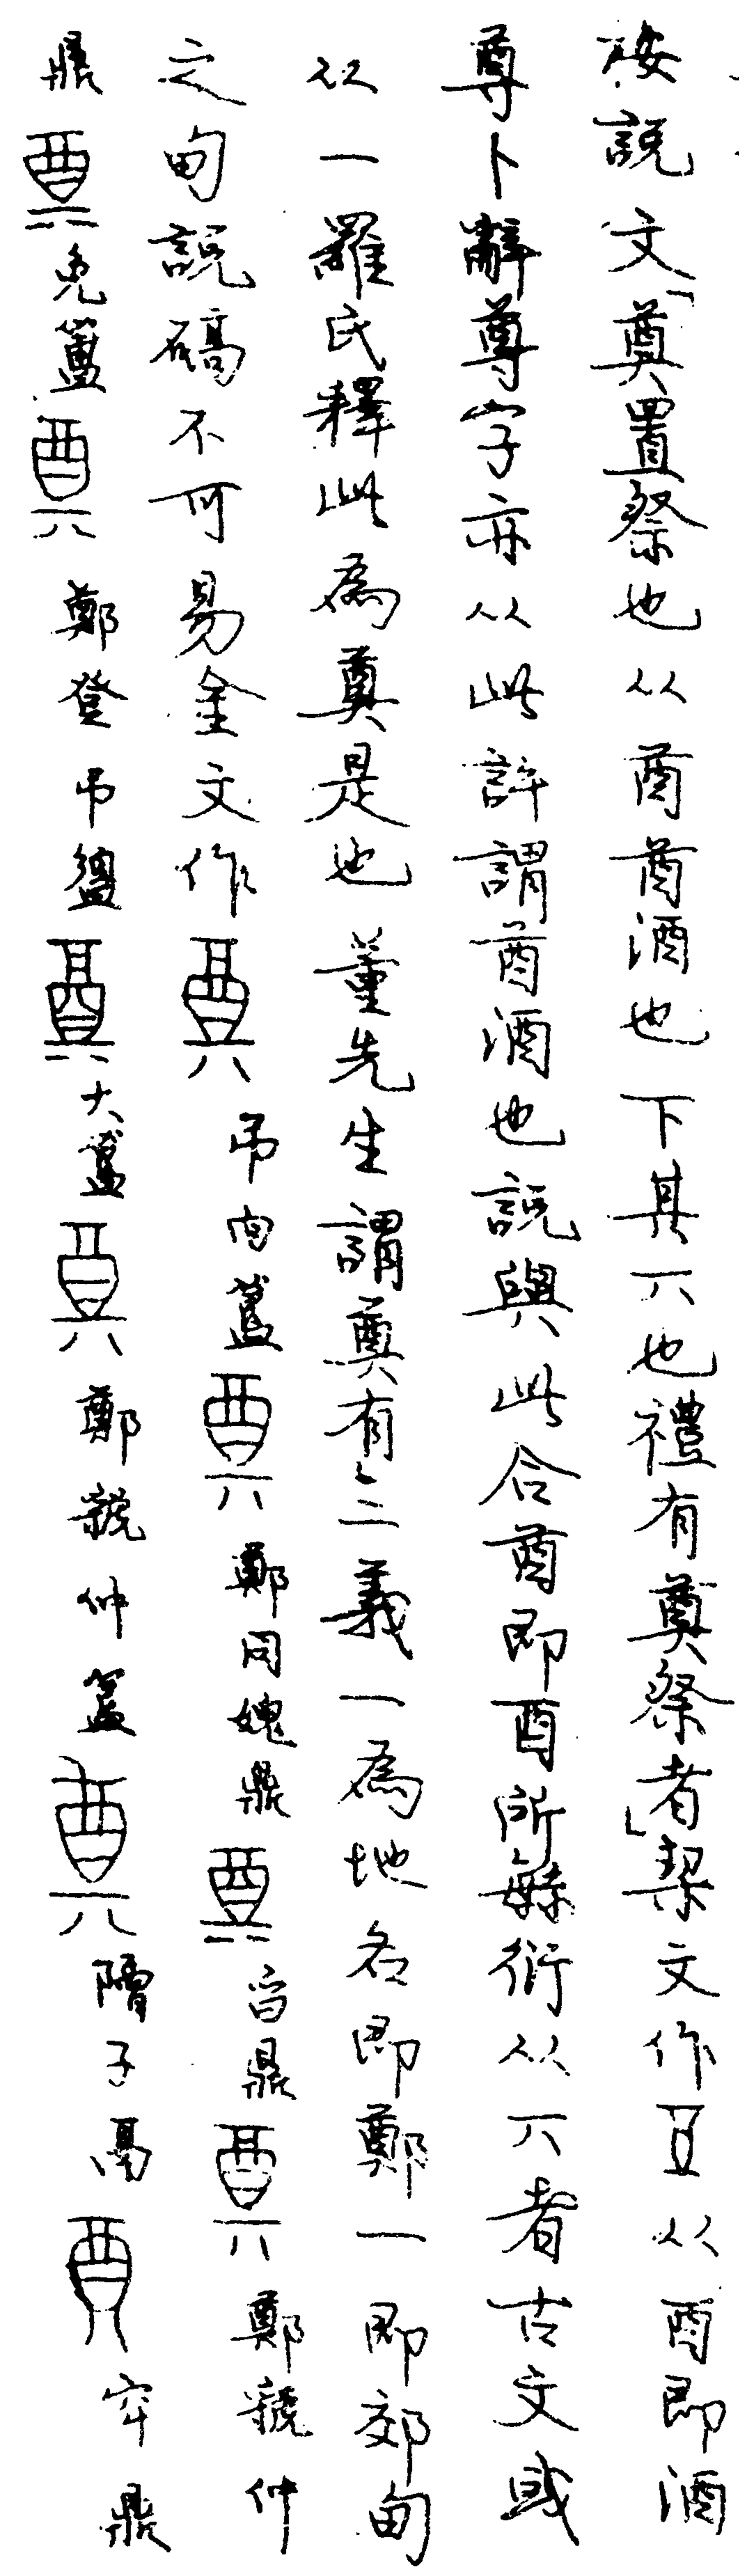 按說文「奠置祭也从酋酋酒也下其丌也禮有奠祭者」栔文作从酉即酒
尊卜辭尊字亦从此許謂酋酒也說與此合酋即酉所緐衍从丌者古文或
从一羅氏釋此為奠是也董先生謂奠有二義一為地名即鄭一即郊甸
之甸說碻不可易金文作弔向簋鄭同媿鼎鼎鄭虢仲
鼎免簠鄭登弔盨大簋鄭虢仲簋子鬲鼎